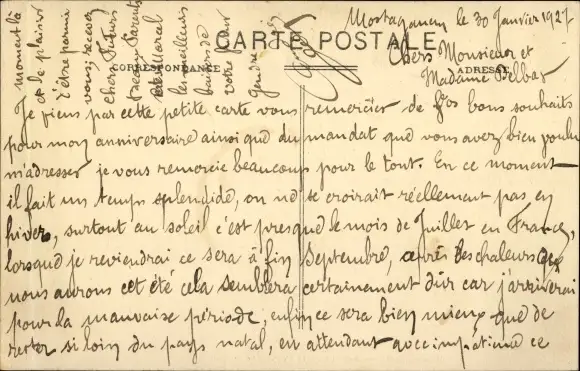 Mostaganem le 30 Janvier 1927
CARTE POSTALE
Chers Monsieur et
CORRESPONDANCE
ADRESSE
Madame Delbar
Je viens par cette petite carte vous remercier de Vos bons souhaits
pour mon anniversaire ainsi que du mandat que vous avez bien voulu
m'adresser je vous remercie beaucoup pour le tout. En ce moment
il fait un temps splendide, on ne se croirait réellement pas en
hiver, surtout au soleil c'est presque le mois de Juillet en France,
lorsque je reviendrai ce sera à fin Septembre, après les chaleurs que
nous aurons cet été cela semblera certainement dur car j'arriverai
pour la mauvaise période, enfin ce sera bien mieux que de
rester si loin du pays natal, en attendant avec impatience ce
moment là
et le plaisir
d'être parmi
vous, recevez
chers Futurs
Beaux Parents
les meilleurs
baisers de
votre futur
Gendre